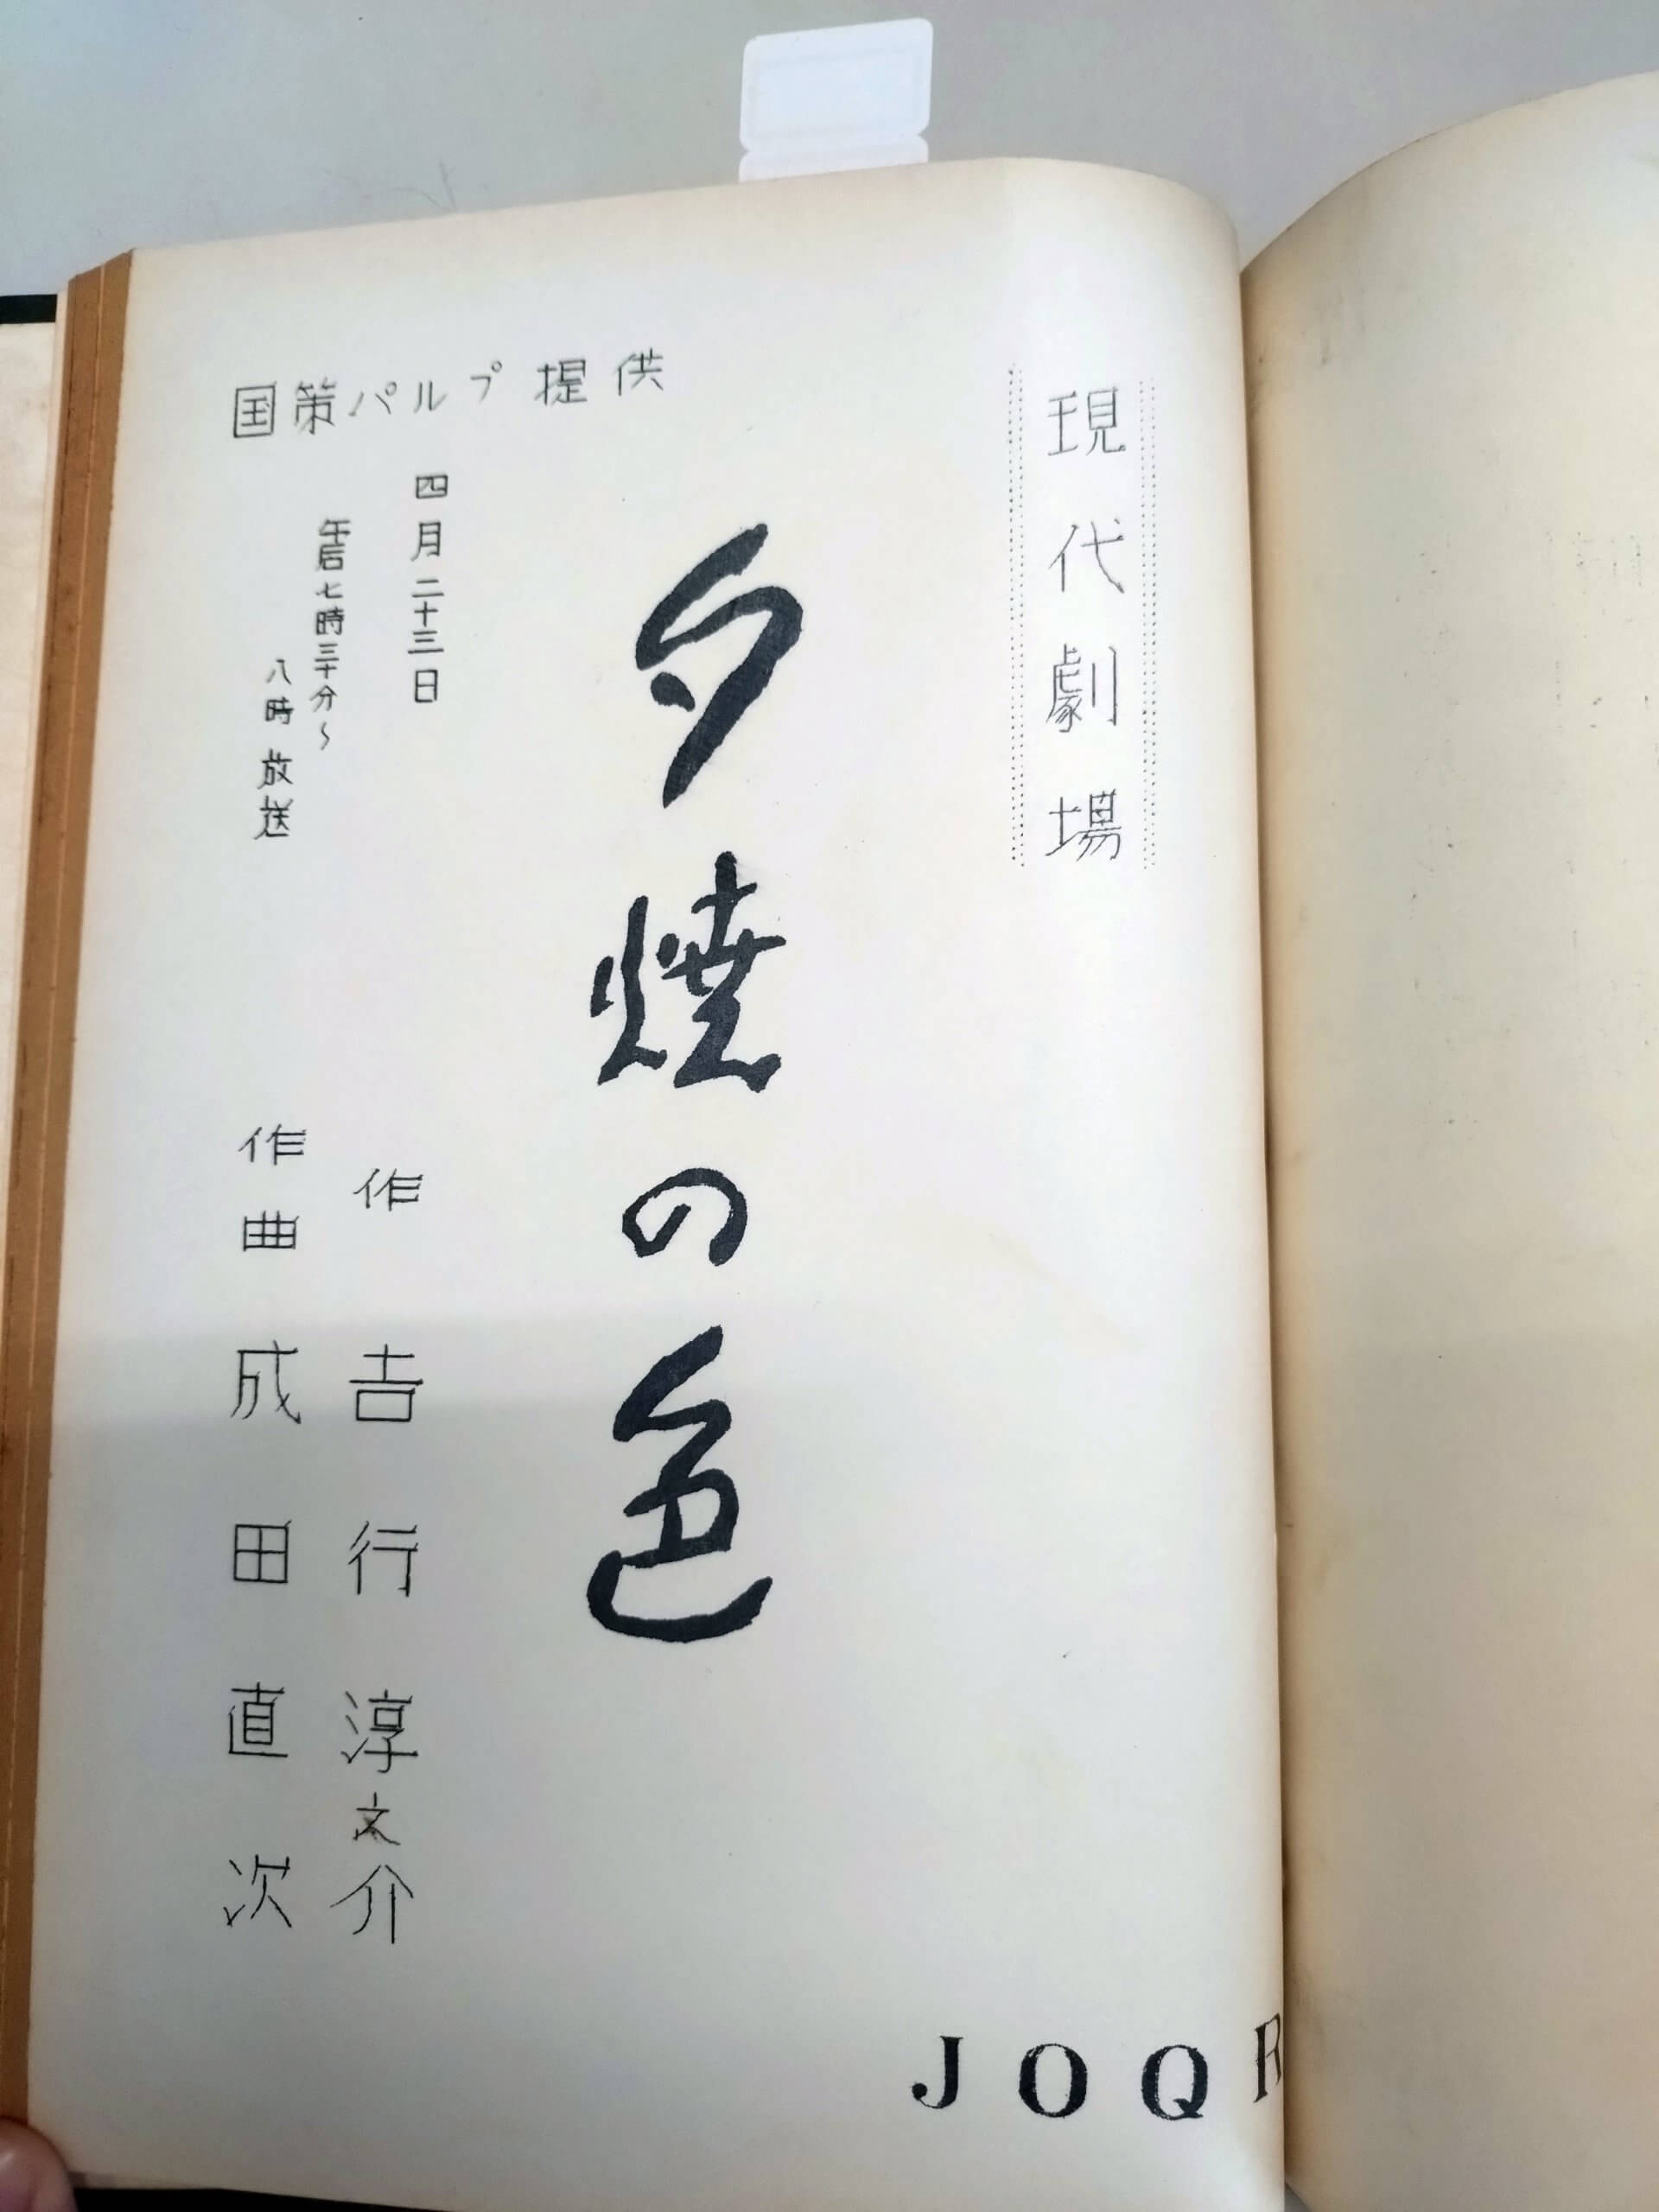 現代劇場
夕焼の色
国策パルプ提供
四月二十三日
午后七時三十分〜
八時放送
作 吉行淳文介
作曲 成田直次
JOQR